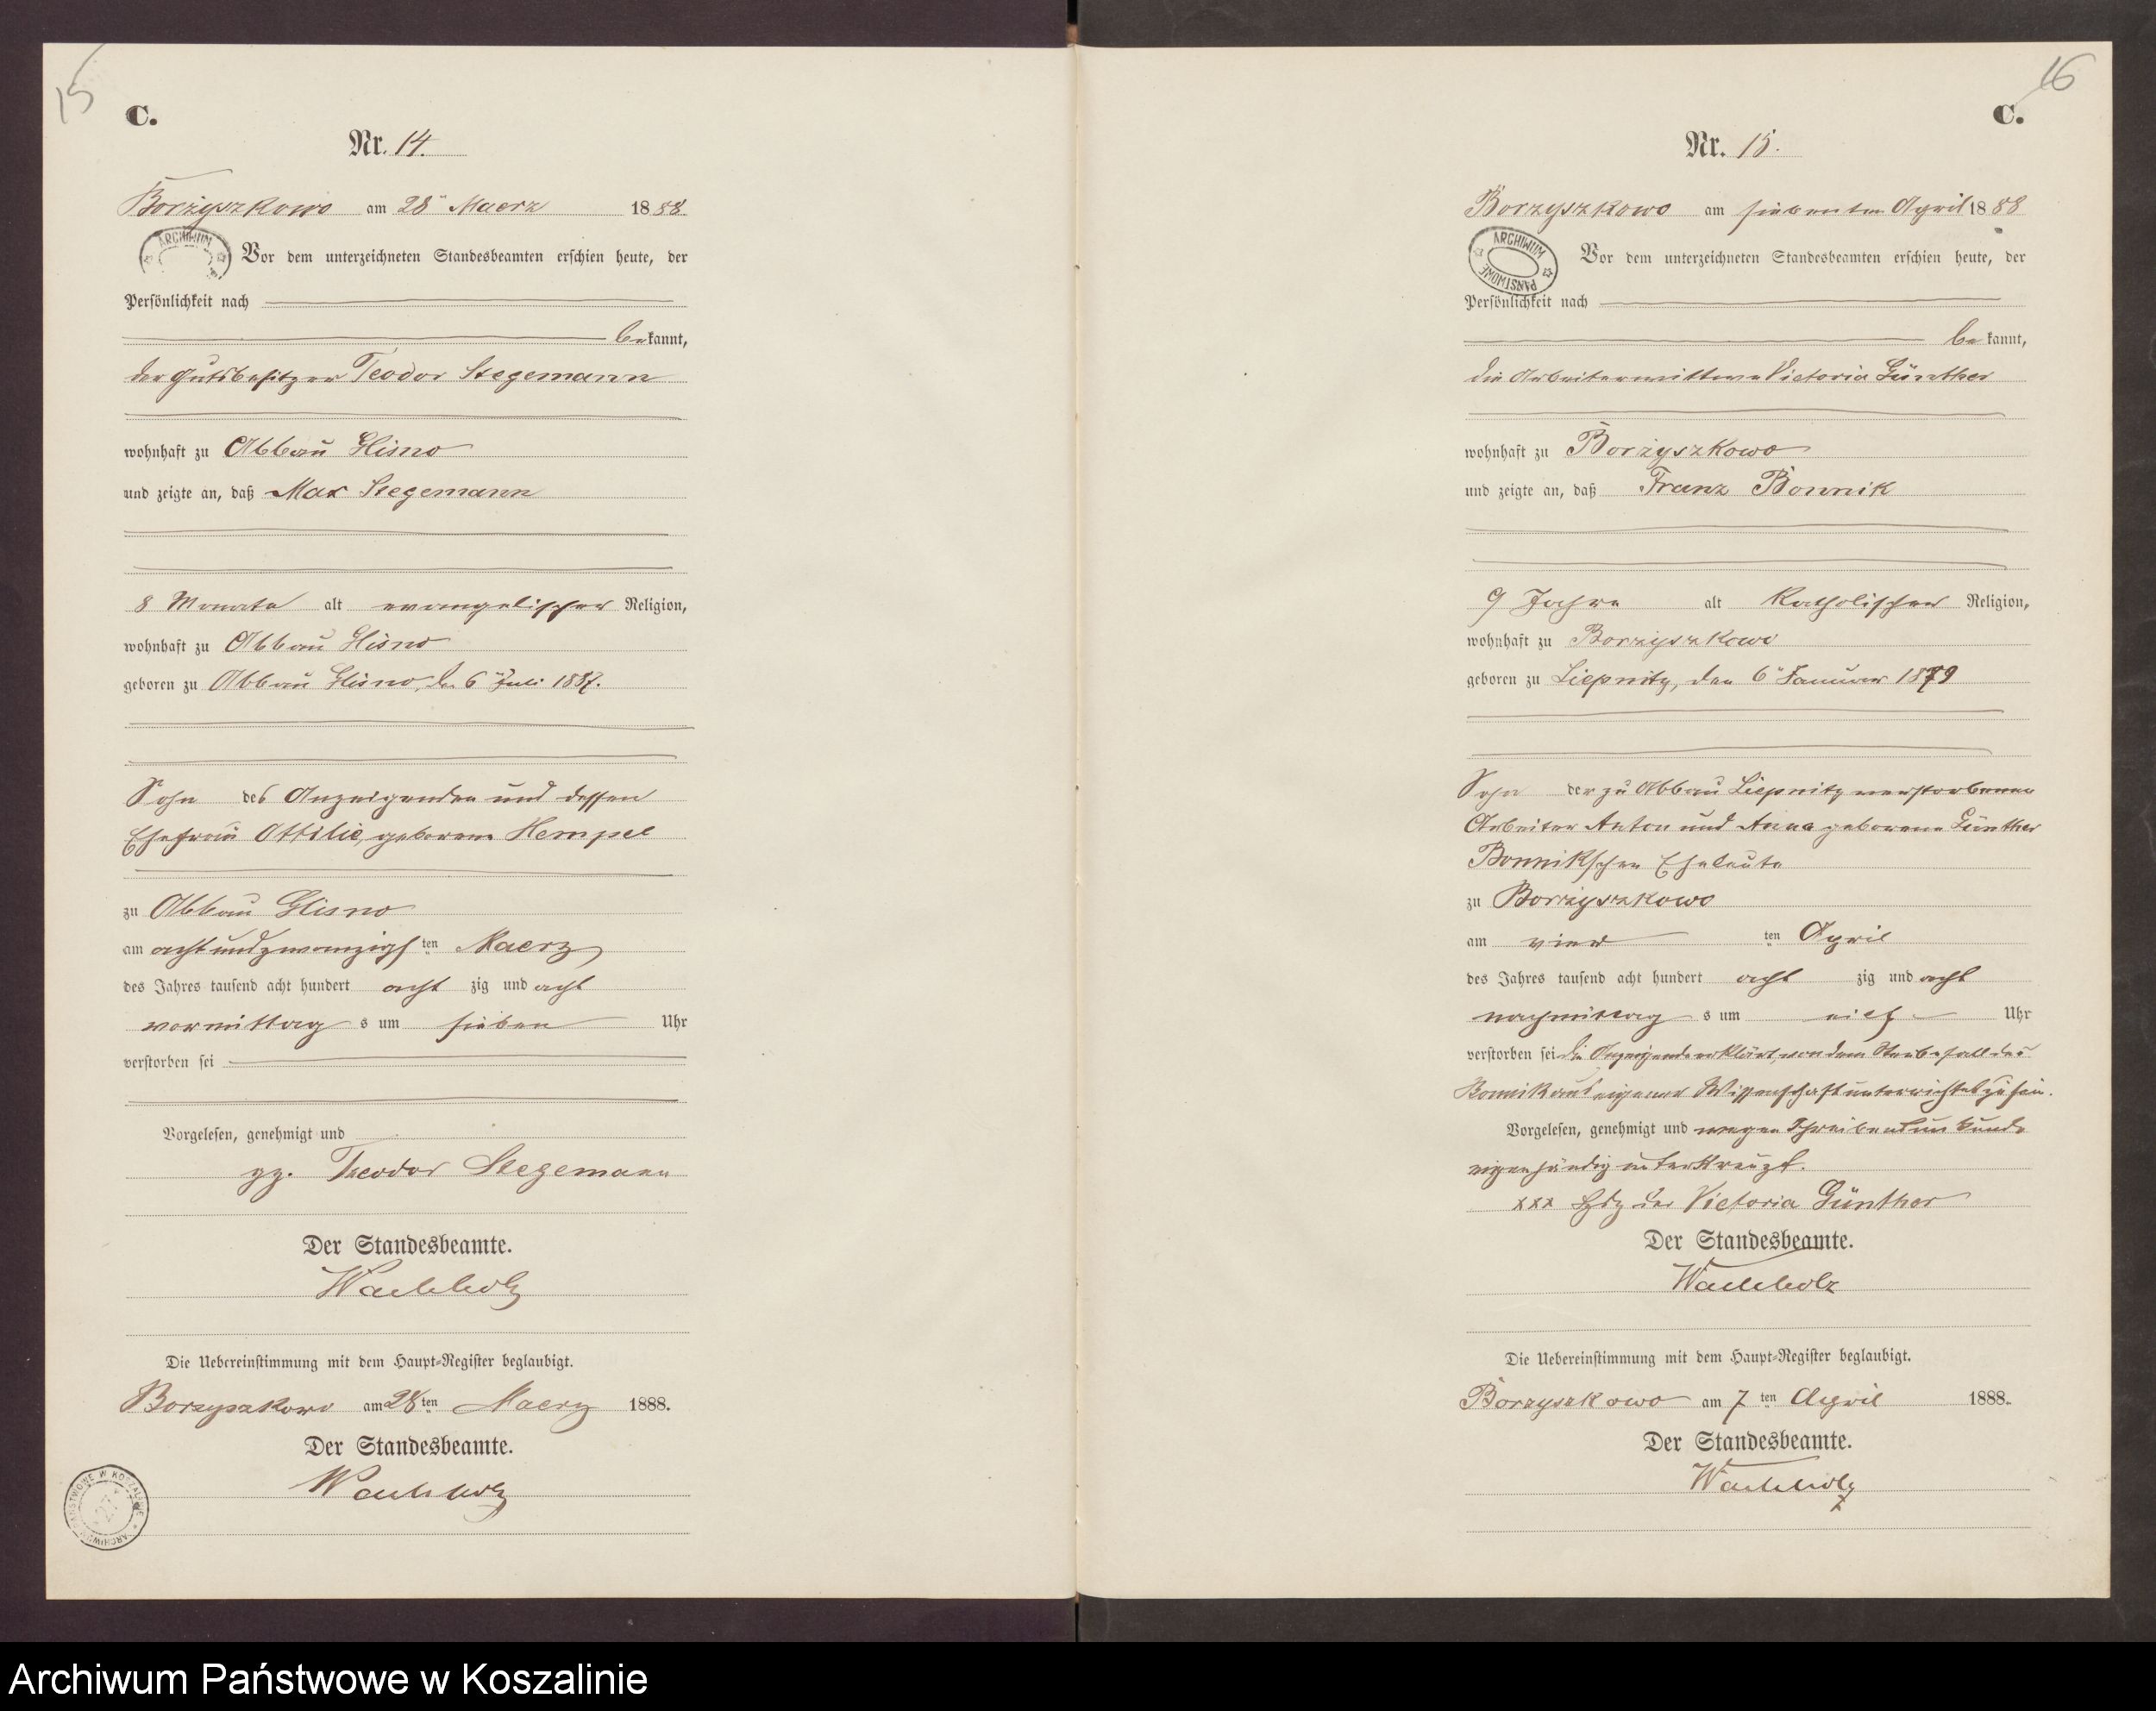 15
C.
Nr. 14.
Borzyszkowo am 28ᵗ Maerz 1888
ARCHIWUM
Vor dem unterzeichneten Standesbeamten erschien heute, der
Persönlichkeit nach
bekannt,
der Gutsbesitzer Teodor Stegemann
wohnhaft zu Abbau Glisno
und zeigte an, daß Max Stegemann
8 Monate alt evangelischer Religion,
wohnhaft zu Abbau Glisno
geboren zu Abbau Glisno, den 6ᵗ Juli 1887.
Sohn des Anzeigenden und dessen
Ehefrau Ottilie, geborene Hempel
zu Abbau Glisno
am achtundzwanzigsten Maerz
des Jahres tausend acht hundert achtzig und acht
vormittags um sieben Uhr
verstorben sei
Vorgelesen, genehmigt und
gz. Theodor Stegemann
Der Standesbeamte.
Wachholz
Die Uebereinstimmung mit dem Haupt-Register beglaubigt.
Borzyszkowo am 28ten Maerz 1888.
Der Standesbeamte.
Wachholz
ARCHIWUM PAŃSTWOWE W KOSZALINIE
16
C.
Nr. 15.
Borzyszkowo am siebenten April 1888
ARCHIWUM PAŃSTWOWE
Vor dem unterzeichneten Standesbeamten erschien heute, der
Persönlichkeit nach
bekannt,
die Arbeiterwittwe Victoria Günther
wohnhaft zu Borzyszkowo
und zeigte an, daß Franz Bonnik
9 Jahre alt Katholischer Religion,
wohnhaft zu Borzyszkowo
geboren zu Liepnitz, den 6ᵗ Januar 1879
Sohn der zu Abbau Liepnitz verstorbenen
Arbeiter Anton und Anna geborene Günther
Bonnikschen Eheleute
zu Borzyszkowo
am vierten April
des Jahres tausend acht hundert achtzig und acht
nachmittags um Uhr
verstorben sei die Anzeigende erklärt, von dem Sterbefall des
Bonnik aus eigener Wissenschaft unterrichtet zu sein.
Vorgelesen, genehmigt und wegen Schreibensunkunde
eigenhändig unterkreuzt.
xxx Hdz der Victoria Günther
Der Standesbeamte.
Wachholz
Die Uebereinstimmung mit dem Haupt-Register beglaubigt.
Borzyszkowo am 7ten April 1888.
Der Standesbeamte.
Wachholz
Archiwum Państwowe w Koszalinie